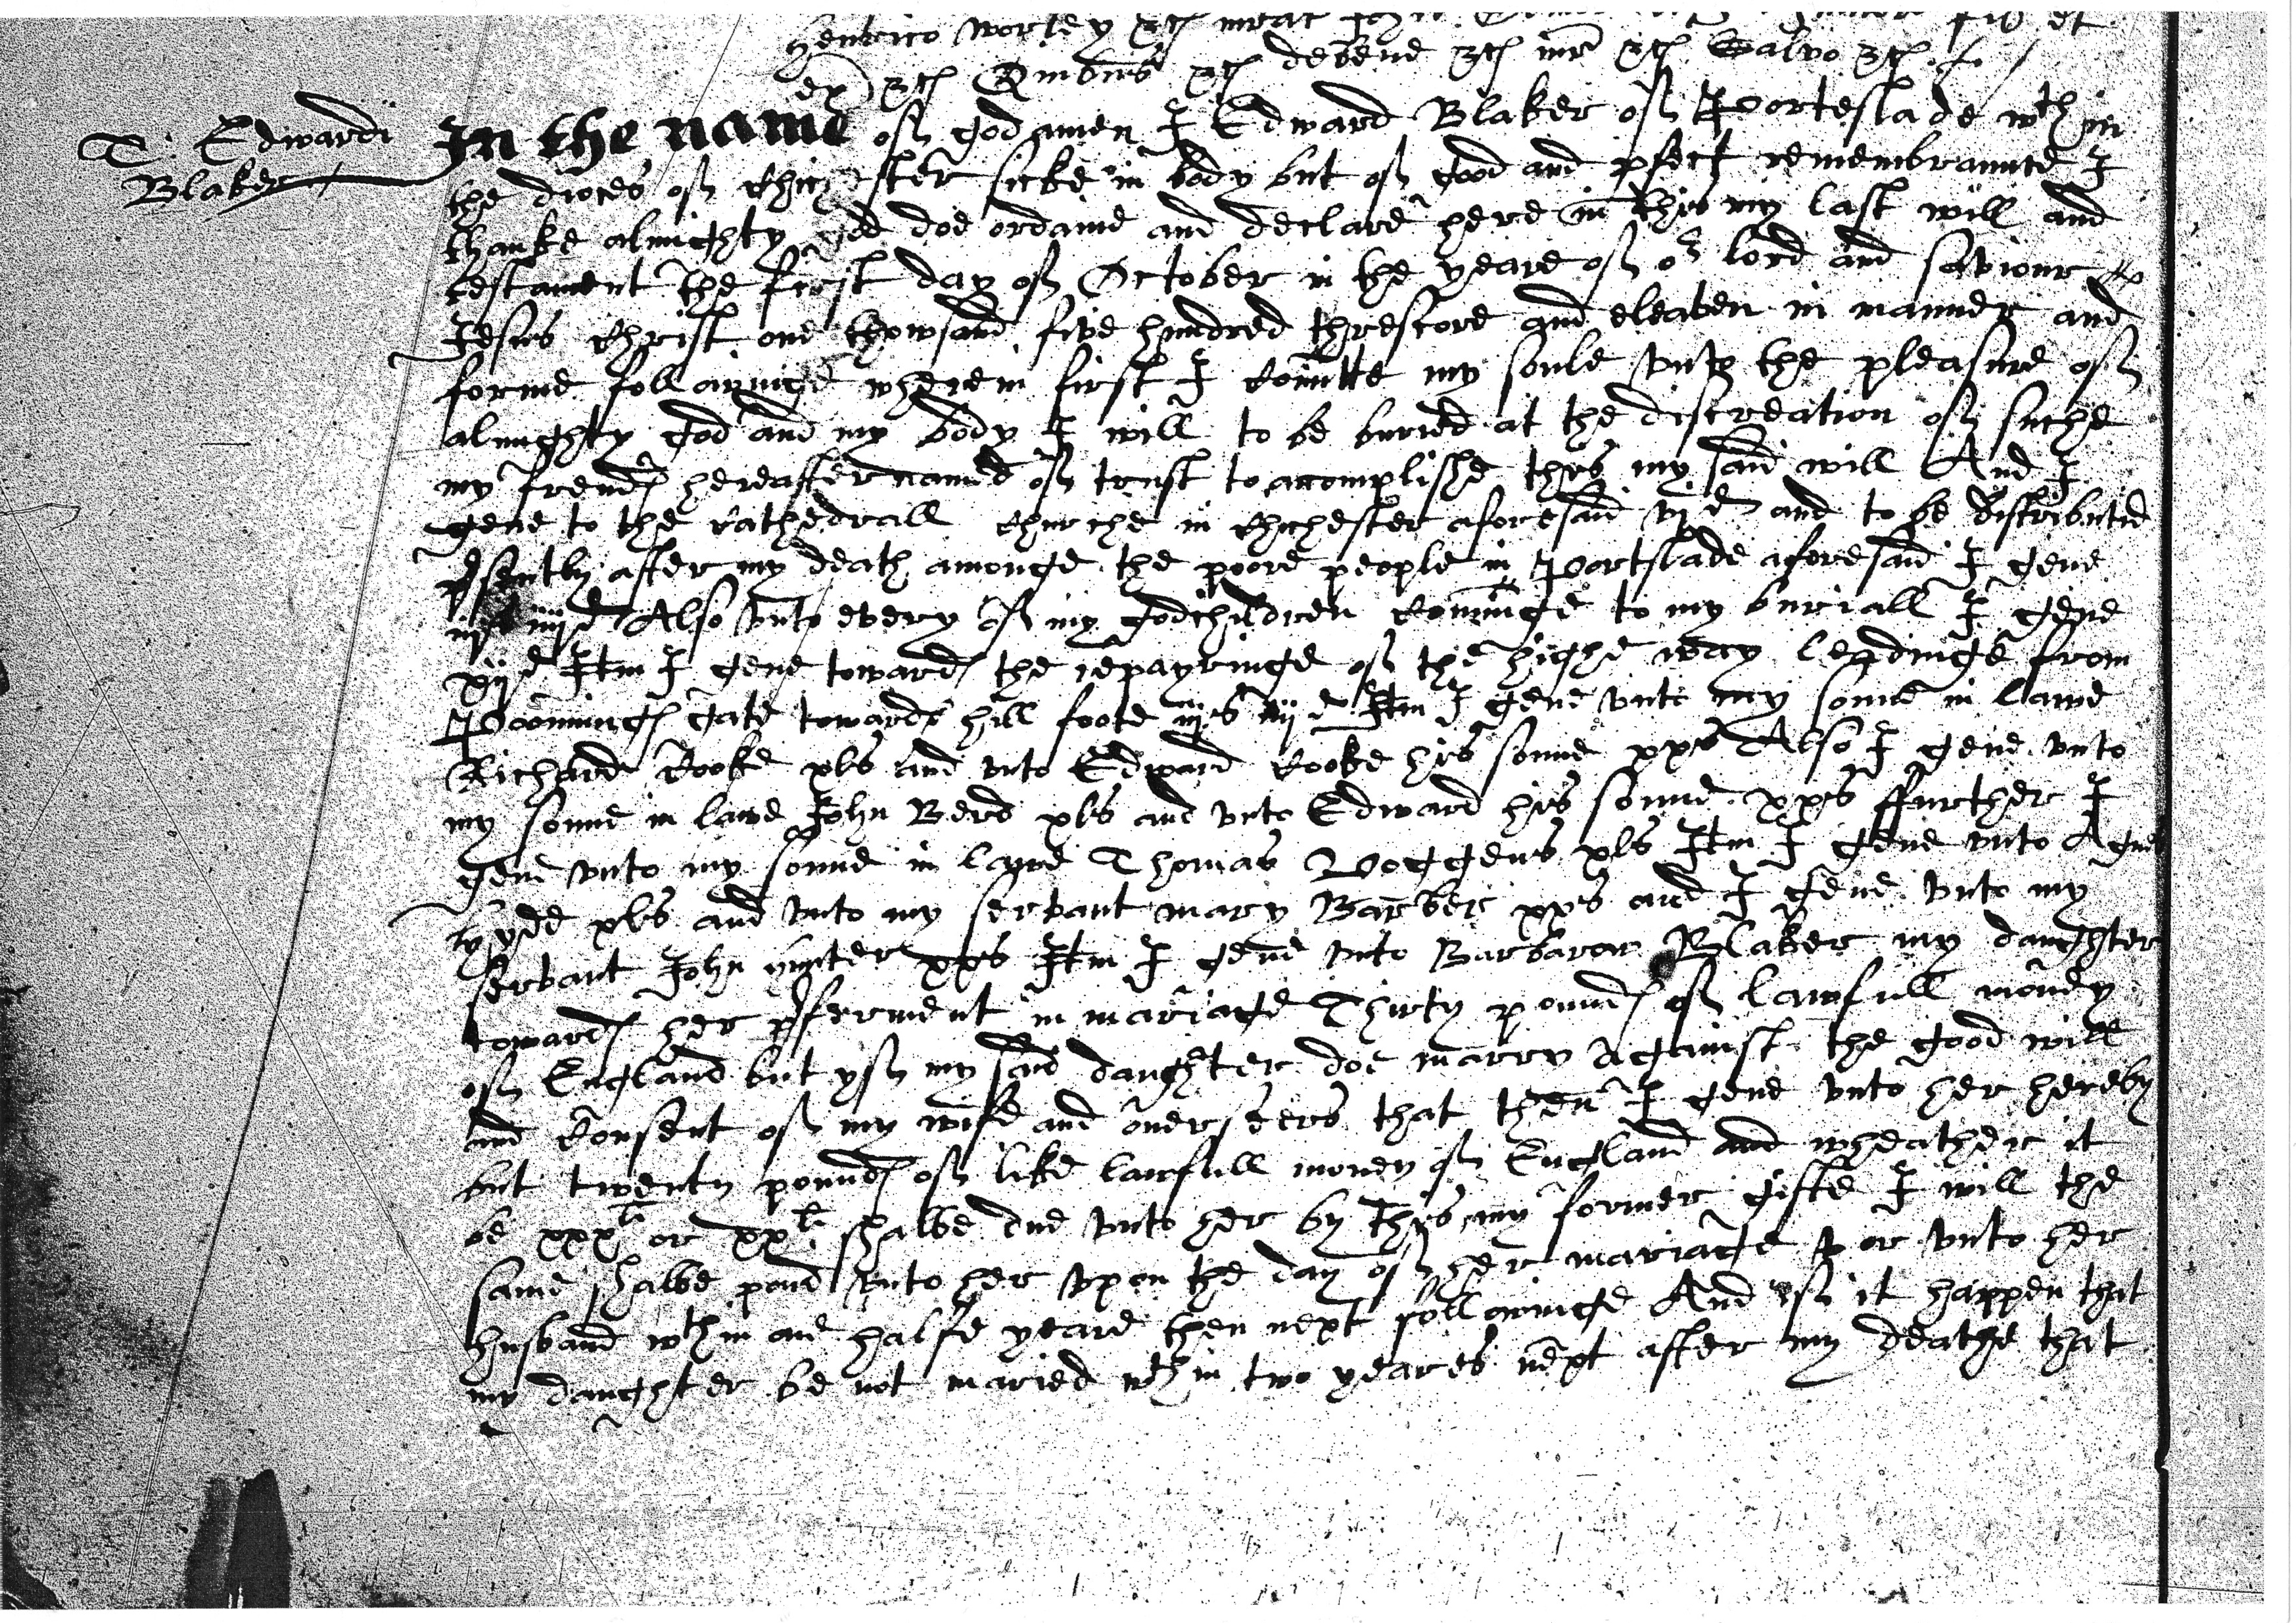 Henrico Worley
debene Salvo
T: Edwardi
Blaker
In the name of god amen I Edward Blaker of Porteslade wth in
the dioces of Chichester sicke in body but of good and pfect remembraunce I
thanke almighty god doe ordaine and declare here in this my last will and
testament the first day of October in the yeare of or lord and saviour
Jesus Christ one thowsand five hundred threscore and eleaven in manner and
forme followinge wherein first I comitte my soule unto the pleasure of
almighty god and my body I will to be buried at the discreation of suche
my frends hereafter named of trust to accomplishe this my said will And I
geve to the Cathedrall Churche in Chichester aforesaid vjd and to be distributed
psently after my death amonge the poore people in Portslade aforesaid I geve
iijs iiijd Also unto every of my godchildren cominge to my buriall I geve
xijd Itm I geve towards the repayringe of the highe way leadinge from
gate towards hill foote iijs Itm I geve unto my sonne in lawe
Richard Cooke xls and unto Edward Cooke his sonne xxs Also I geve unto
my sonne in lawe John Berd xls and unto Edward his sonne xxs ffurther I
geve unto my sonne in lawe Thomas xls Itm I geve unto Agnes
hyde xls and unto my servant mary Barber xxs and I geve unto my
servant John hunter xxs Itm I geve unto Barbarow Blaker my daughter
towards her pferment in mariage Thirty pounds of lawfull money
of England but yf my said daughter doe marry against the good will
and Consent of my wife and overseers that then I geve unto her hereby
but twenty pounds of like lawfull money of England and wheather it
be xxxli or xxli shalbe due unto her by this my former gifte I will the
same shalbe paid unto her upon the day of her mariage or unto her
husband wth in one halfe yeare then next followinge And yf it happen that
my daughter be not maried wth in two yeares next after my deathe that